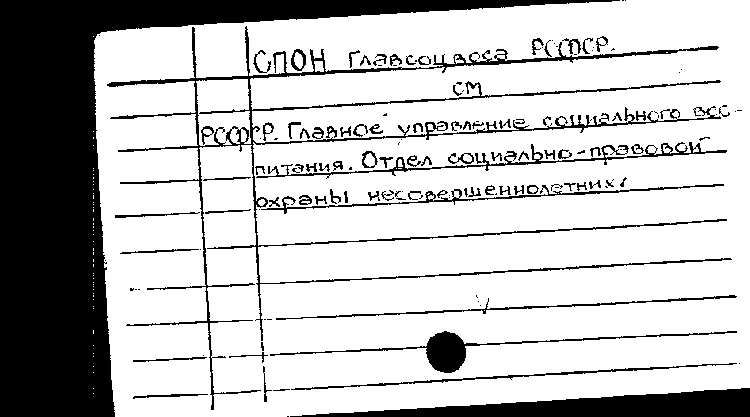 СПОН Главсоцвоса РСФСР.
см
РСФСР. Главное управление социального вос-
питания. Отдел социально-правовой
охраны несовершеннолетних.